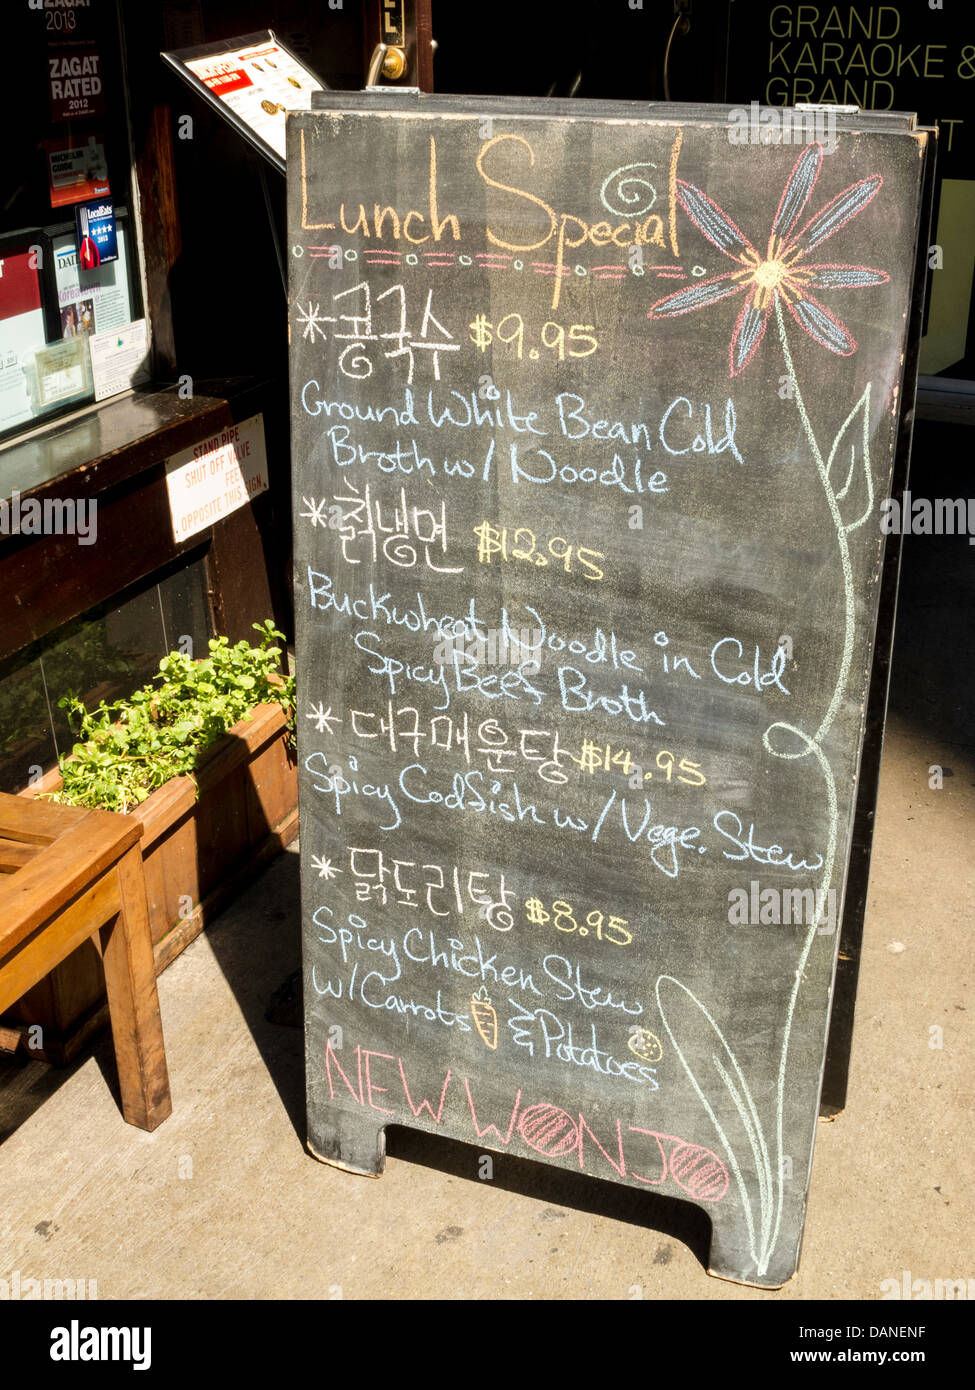 ZAGAT
2013
ZAGAT
RATED
2012
MICHELIN
GUIDE
LocalEats
STAND PIPE
SHUT OFF VALVE
FEET
OPPOSITE THIS SIGN
GRAND
KARAOKE &
GRAND
Lunch Special
*콩국수 $9.95
Ground White Bean Cold
Broth w/ Noodle
*칡냉면 $12.95
Buckwheat Noodle in Cold
Spicy Beef Broth
*대구매운탕 $14.95
Spicy Codfish w/ Vege. Stew
*닭도리탕 $8.95
Spicy Chicken Stew
w/ Carrots & Potatoes
NEW WONJO
alamy
alamy stock photo
DANENF
www.alamy.com